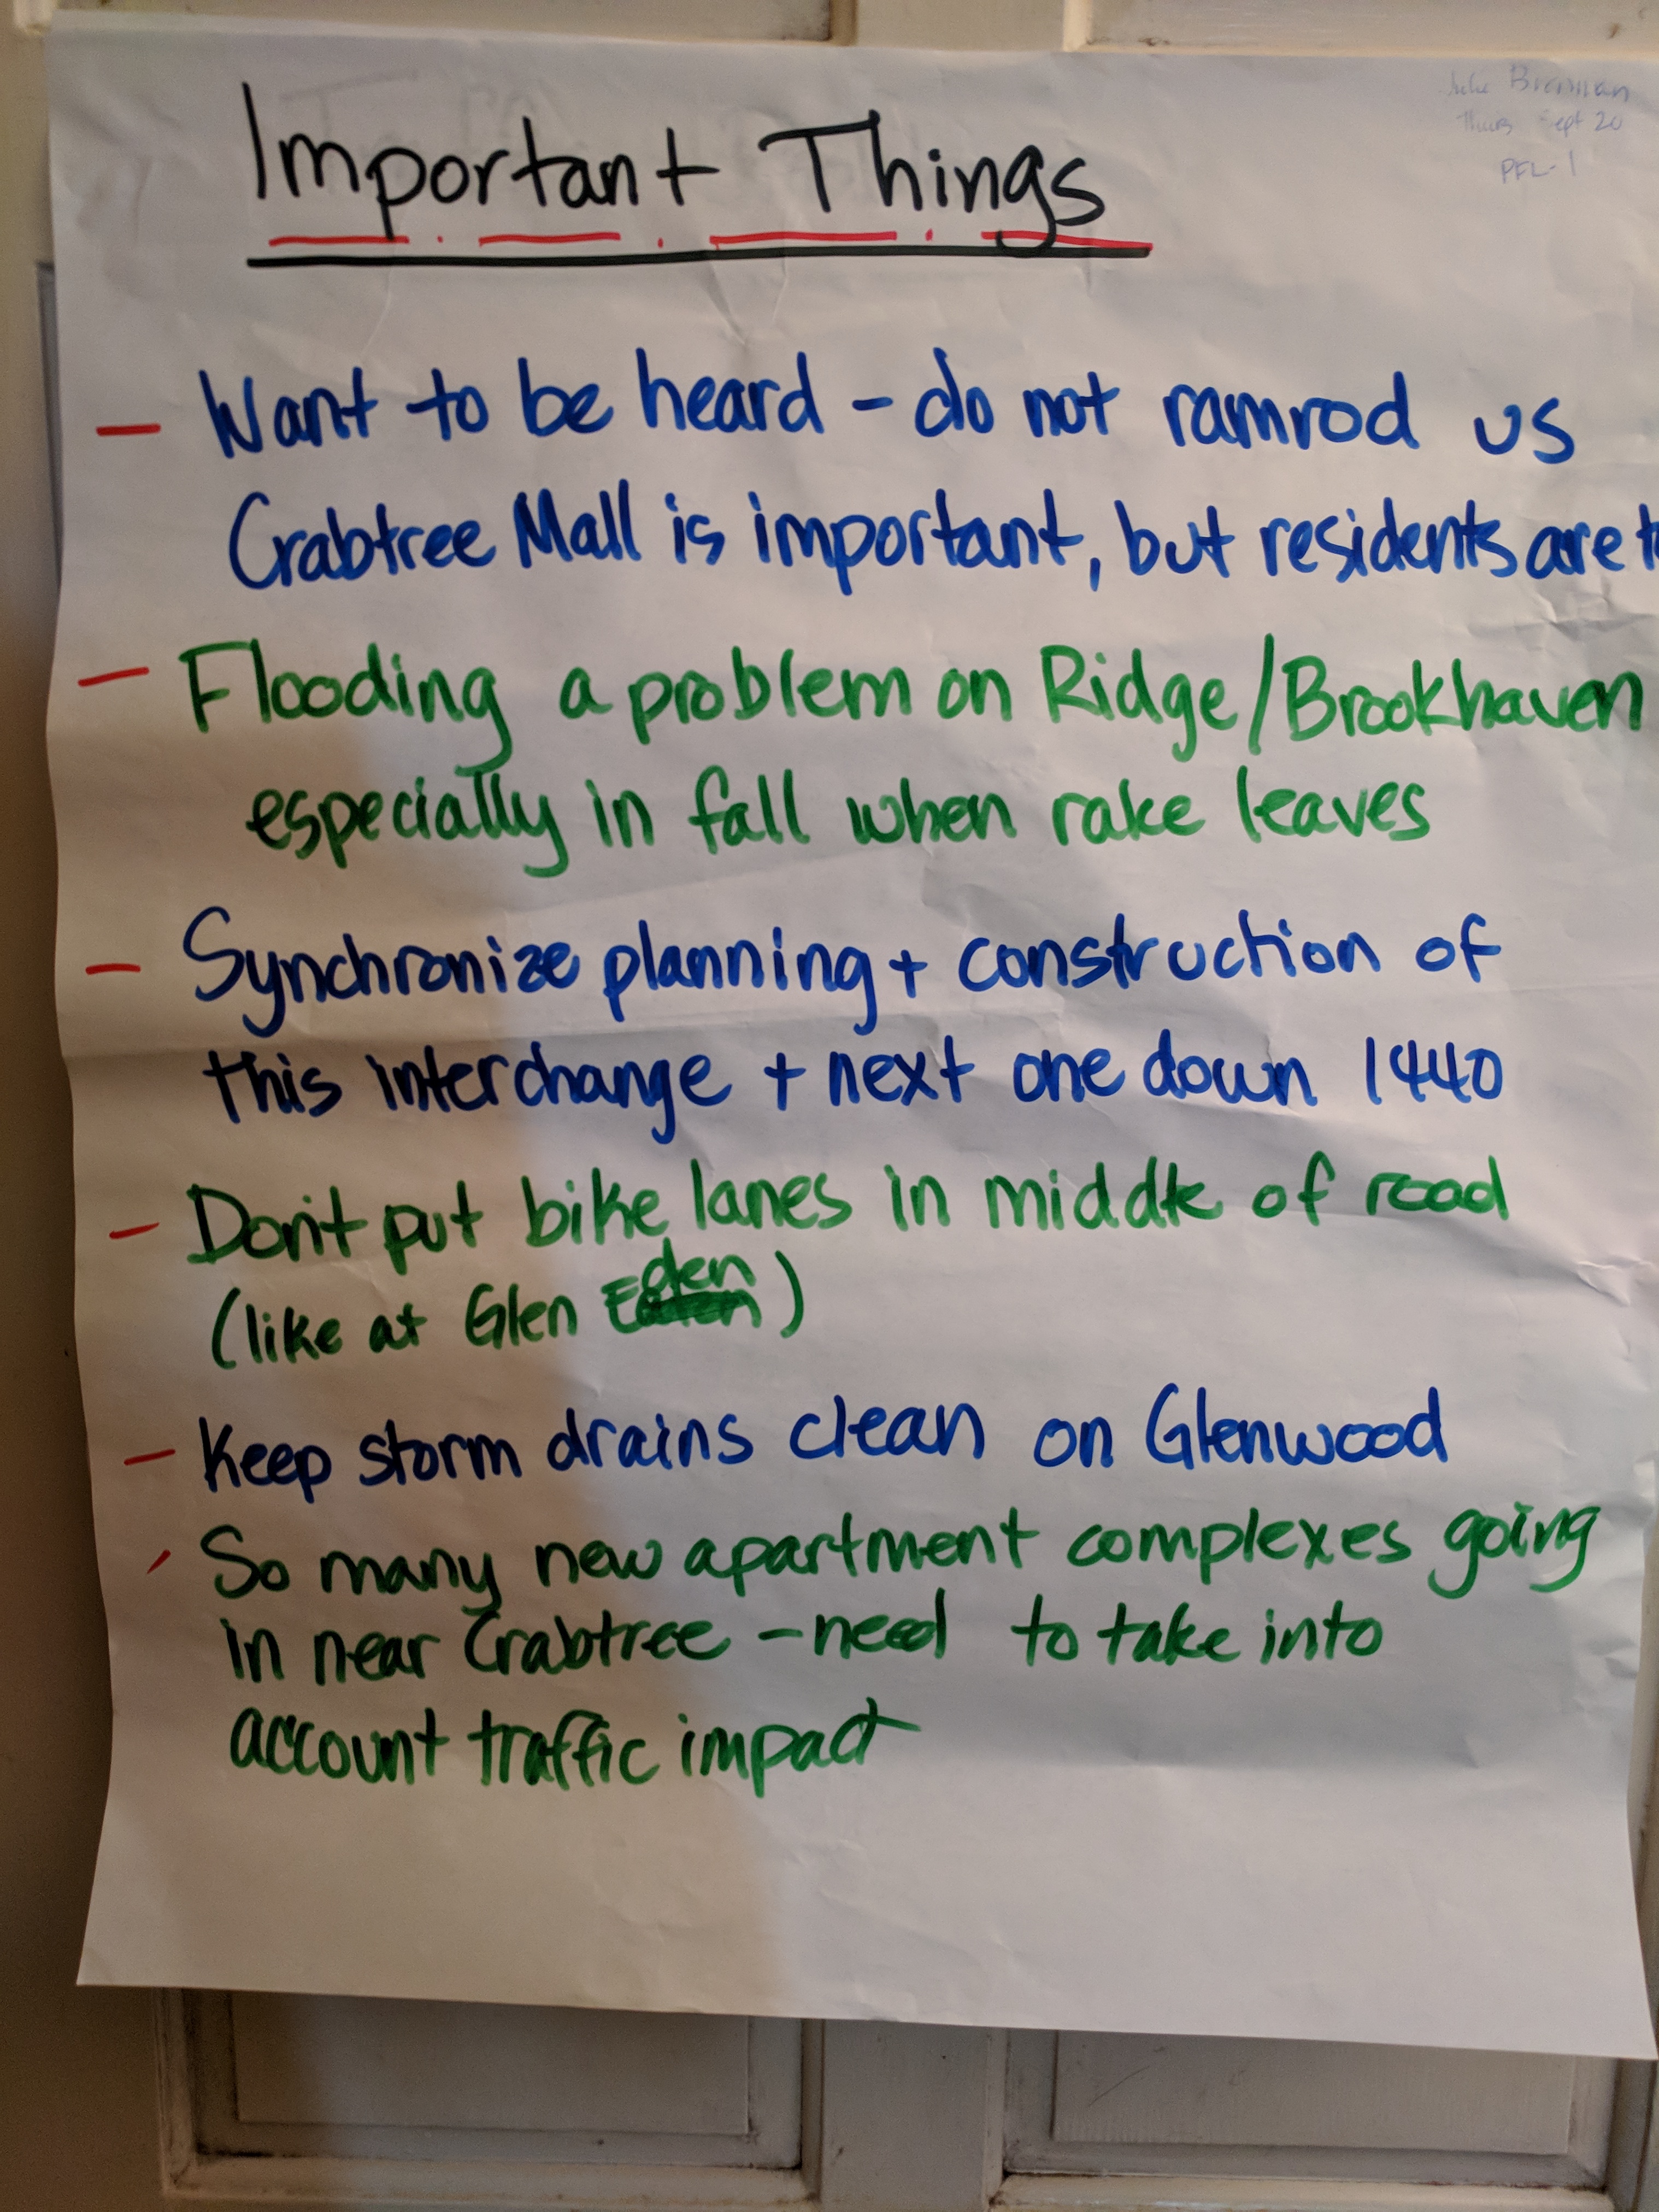 Brennan
Thurs Sept 20
PFL-1
Important Things
- Want to be heard - do not ramrod us
Crabtree Mall is important, but residents are
- Flooding a problem on Ridge/Brookhaven
especially in fall when rake leaves
- Synchronize planning + construction of
this interchange + next one down I440
- Don't put bike lanes in middle of road
(like at Glen Eden)
- Keep storm drains clean on Glenwood
- So many new apartment complexes going
in near Crabtree - need to take into
account traffic impact